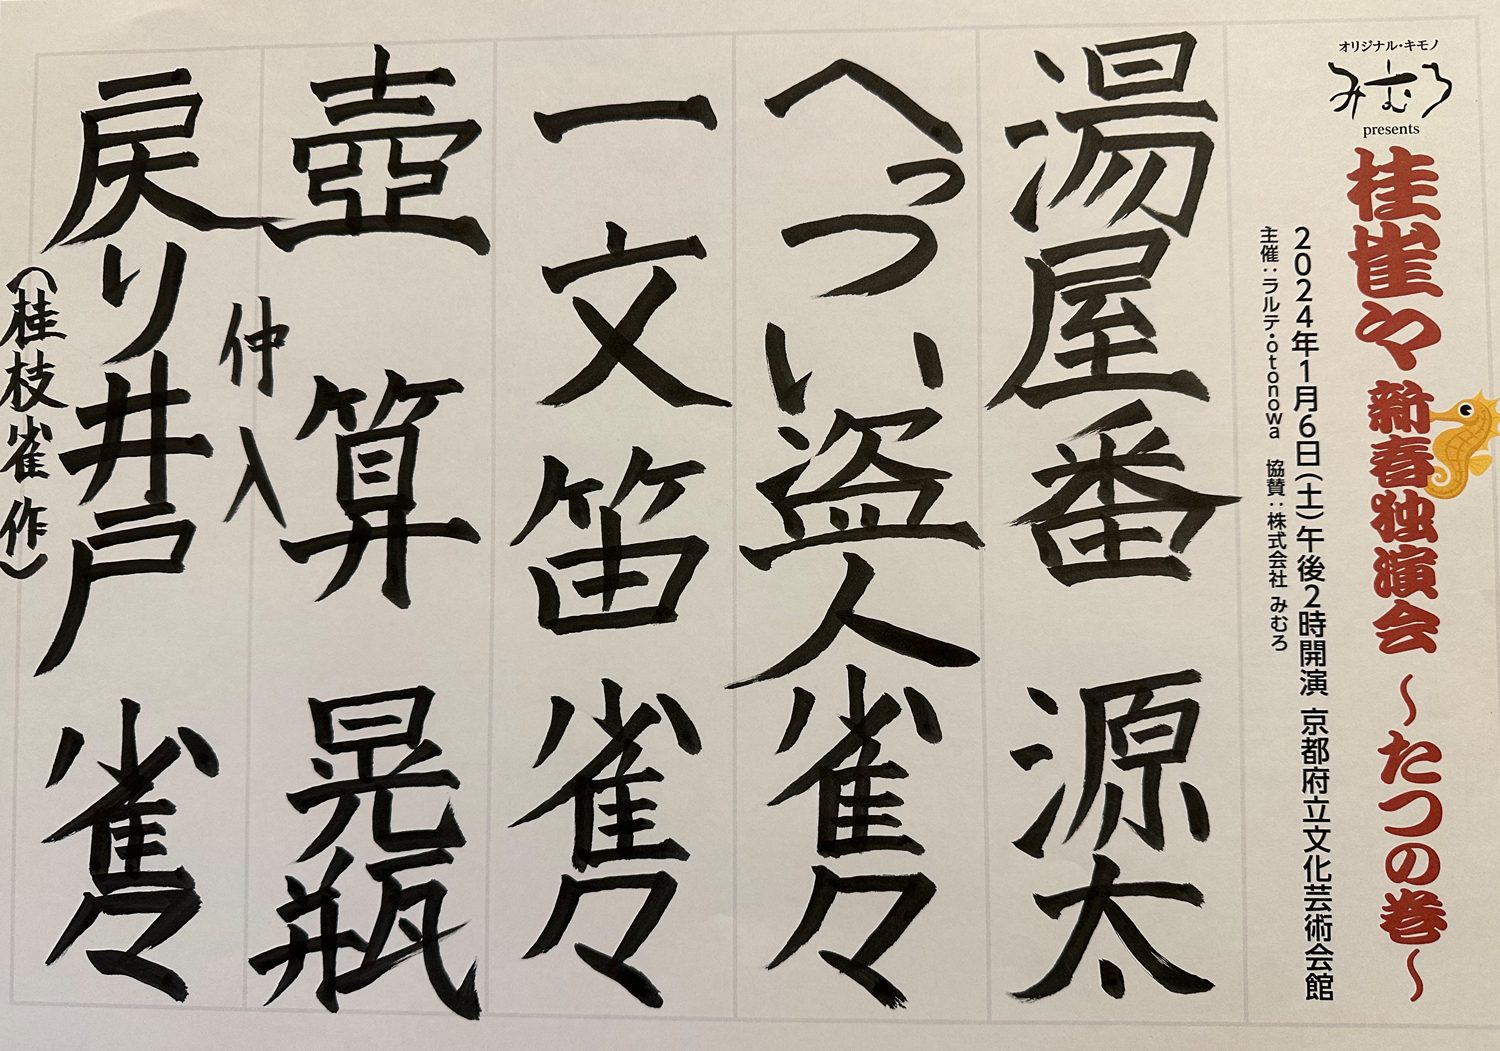 オリジナル・キモノ
みむろ
presents
桂雀々 新春独演会 ～たつの巻～
2024年1月6日(土)午後2時開演 京都府立文化芸術会館
主催：ラルテ・otonowa 協賛：株式会社 みむろ
湯屋番 源太
へっつい盗人 雀々
一文笛 雀々
壺算 晃瓶
仲入
戻り井戸 雀々
(桂枝雀作)